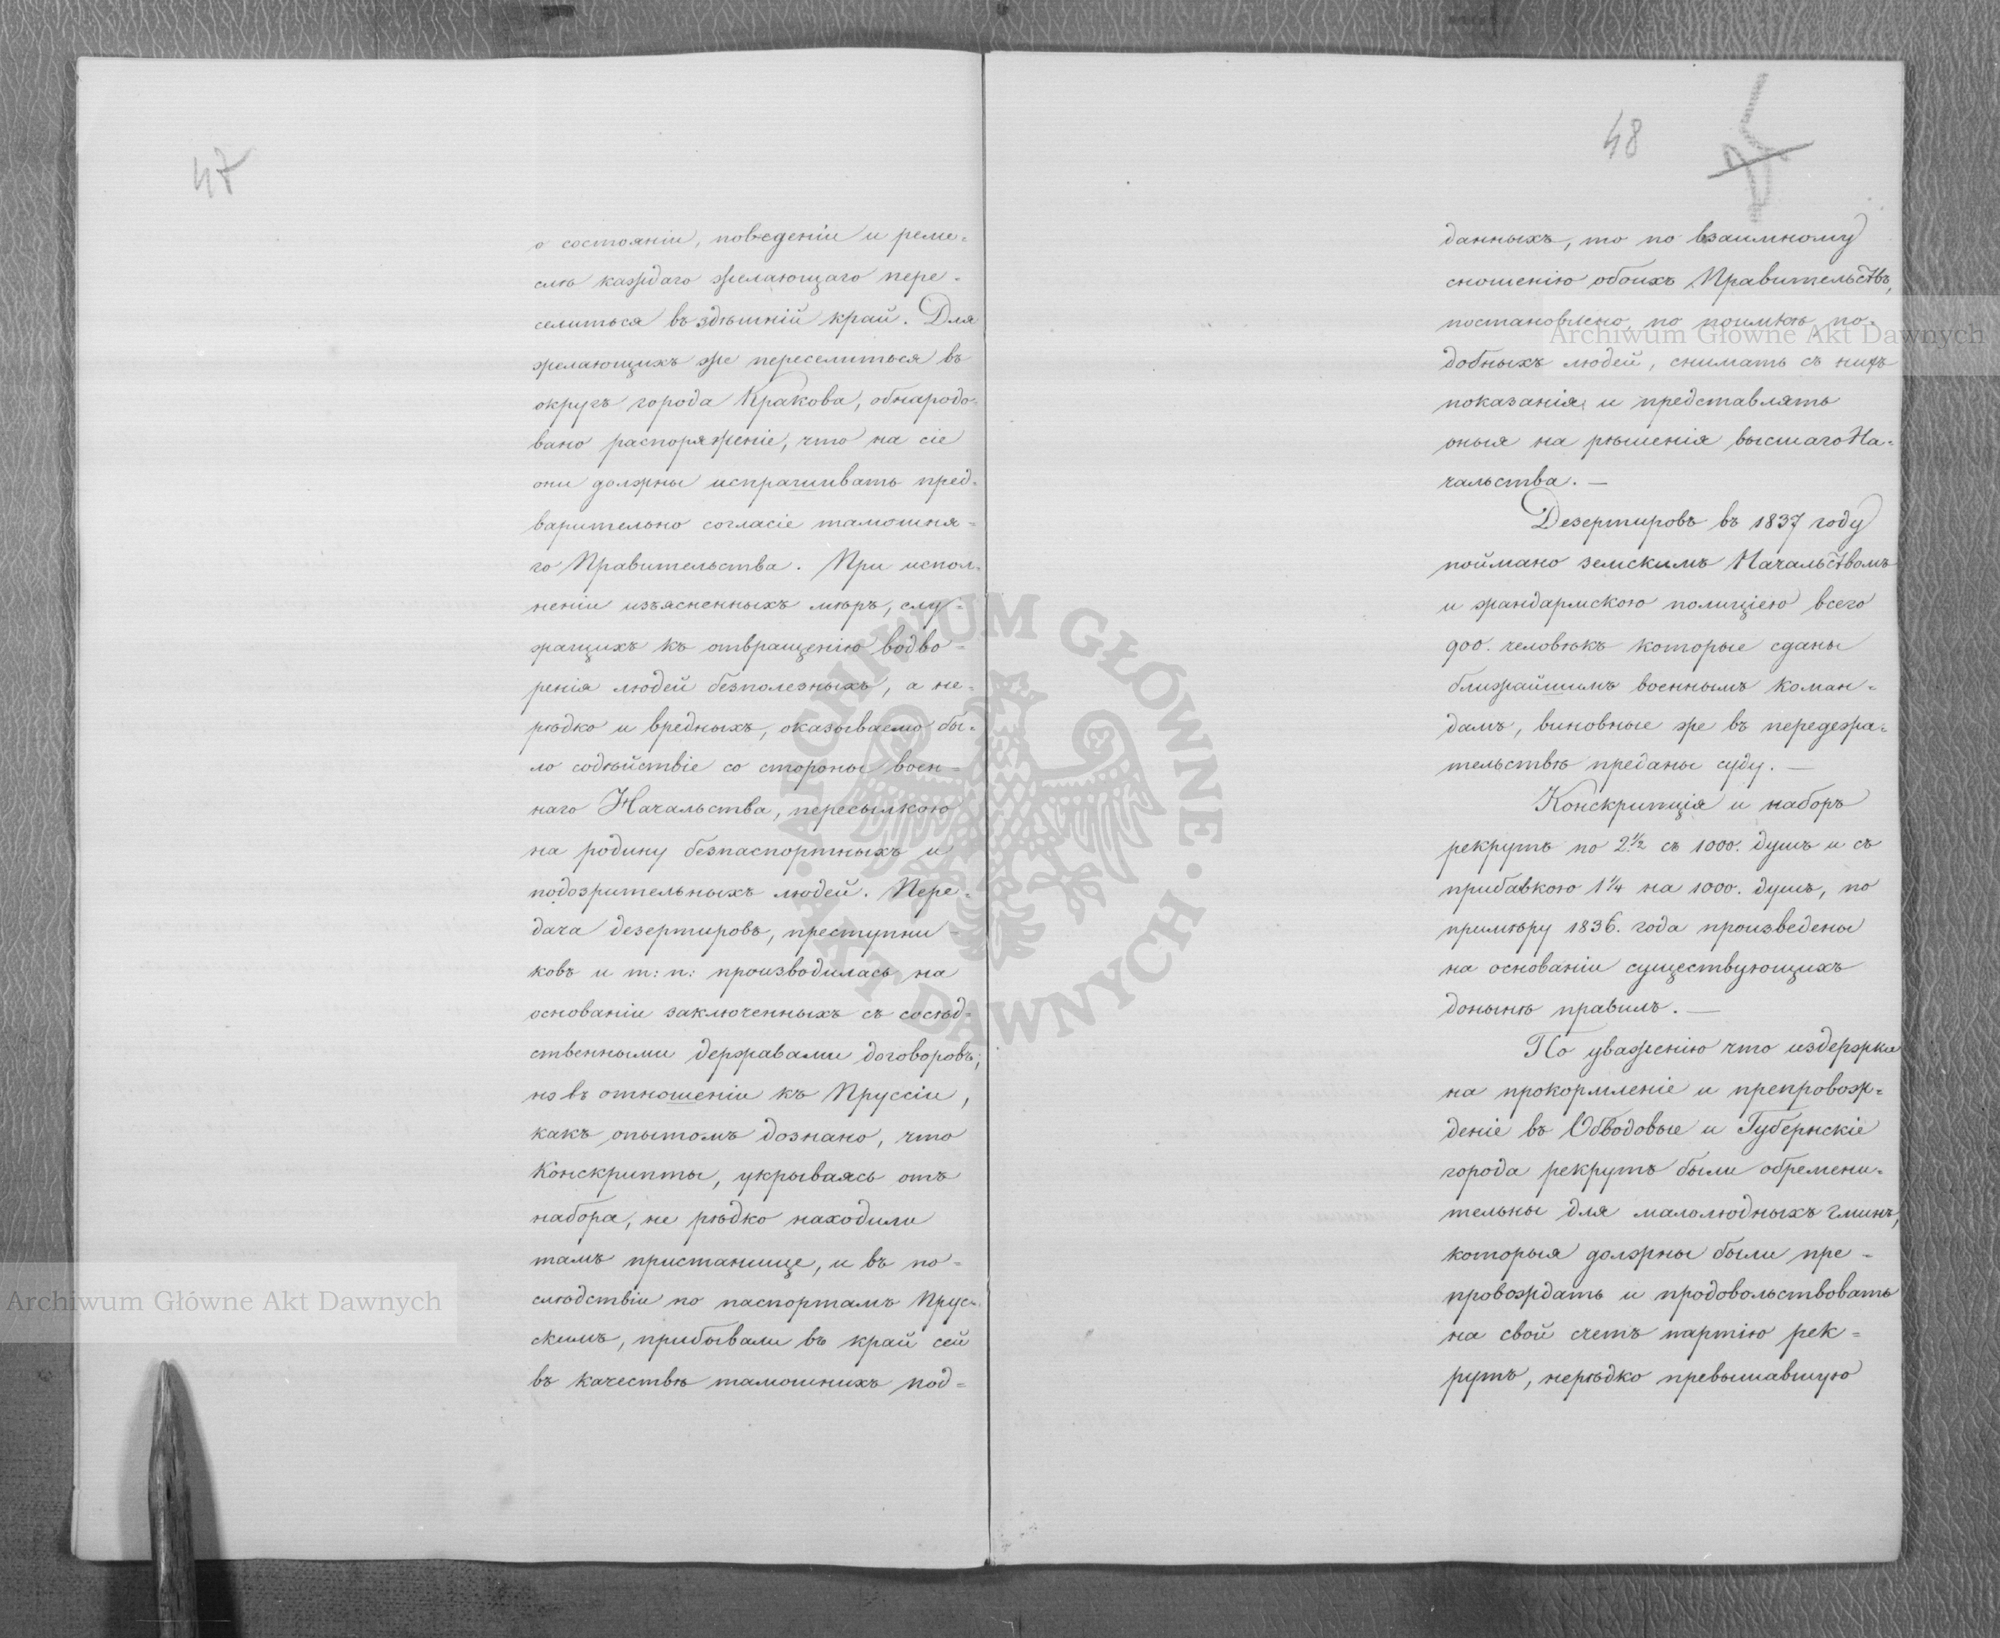 47
о состояніи, поведеніи и реме-
слѣ каждаго желающаго пере-
селиться въ здѣшній край. Для
желающихъ же переселиться въ
округъ города Кракова, обнародо-
вано распоряженіе, что на сіе
они должны испрашивать пред-
варительно согласіе тамошня-
го Правительства. При испол-
неніи изъясненныхъ мѣръ, слу-
жащихъ къ отвращенію водво-
ренія людей безполезныхъ, а не-
рѣдко и вредныхъ, оказываемо бы-
ло содѣйствіе со стороны воен-
наго Начальства, пересылкою
на родину безпаспортныхъ и
подозрительныхъ людей. Пере-
дача дезертировъ, преступни-
ковъ и т: п: производилась на
основаніи заключенныхъ съ сосѣд-
ственными державами договоровъ;
но въ отношеніи къ Пруссіи,
какъ опытомъ дознано, что
Конскрипты, укрываясь отъ
набора, не рѣдко находили
тамъ пристанище, и въ по-
слѣдствіи по паспортамъ Прус-
скимъ, прибывали въ край сей
въ качествѣ тамошнихъ под-
48
данныхъ, то по взаимному
сношенію обоихъ Правительствъ,
постановлено по поимкѣ по-
добныхъ людей, снимать съ нихъ
показанія и представлять
оныя на рѣшенія высшаго На-
чальства. —
Дезертировъ въ 1837 году
поймано земскимъ Начальствомъ
и жандармскою полиціею всего
900. человѣкъ которые сданы
ближайшимъ военнымъ коман-
дамъ, виновные же въ передержа-
тельствѣ преданы суду. —
Конскрипція и наборъ
рекрутъ по 2 1/2 съ 1000. душъ и съ
прибавкою 1 1/4 на 1000. душъ, по
примѣру 1836. года произведены
на основаніи существующихъ
донынѣ правилъ. —
По уваженію что издержки
на прокормленіе и препровож-
деніе въ Обводовые и Губернскіе
города рекрутъ были обремени-
тельны для малолюдныхъ гминъ,
которыя должны были пре-
провождать и продовольствовать
на свой счетъ партію рек-
рутъ, нерѣдко превышавшую
Archiwum Główne Akt Dawnych
Archiwum Główne Akt Dawnych
ARCHIWUM GŁÓWNE · AKT DAWNYCH ·